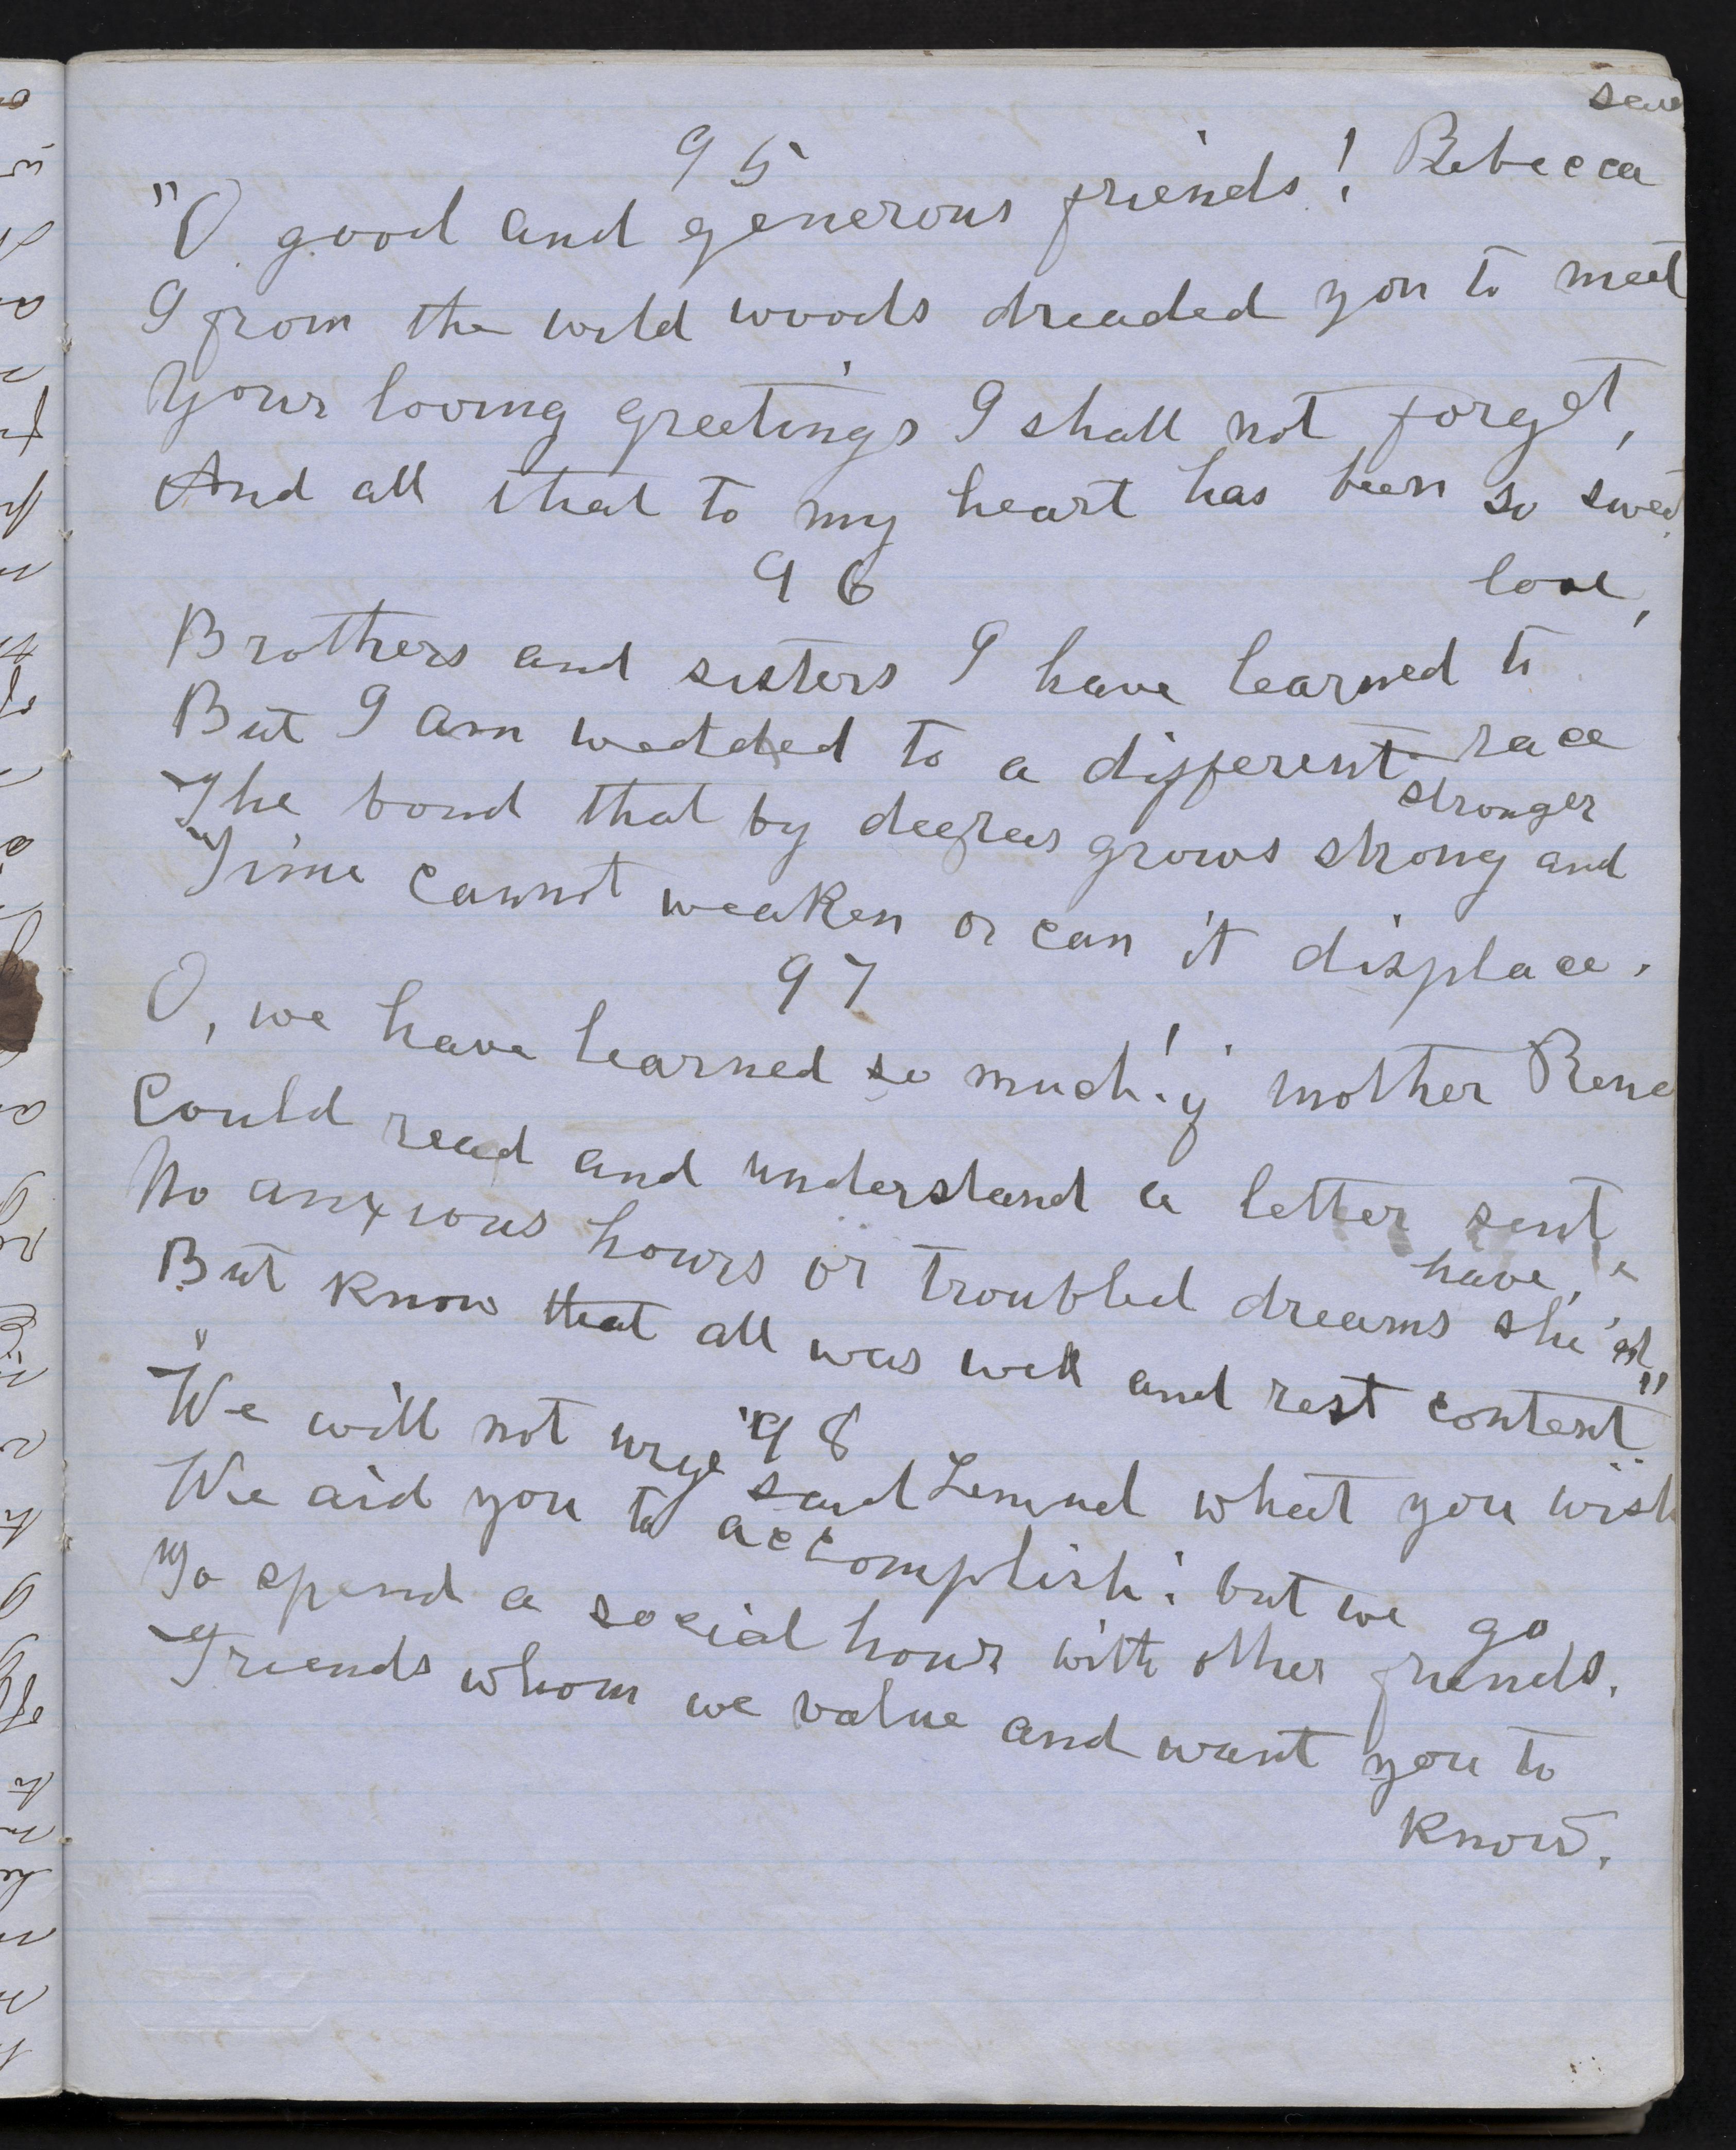 95
"O good and generous friends! Rebecca
I from the wild woods dreaded you to meet
Your loving greetings I shall not forget,
And all that to my heart has been so sweet
96
love,
Brothers and sisters I have learned to
But I am wedded to a different race
stronger
The bond that by degrees grows strong and
Time cannot weaken or can it displace.
97
O, we have learned so much! if mother Rene
Could read and understand a letter sent
No anxious hours or troubled dreams she'd
have,
But know that all was well and rest content"
98
"We will not urge" said Lemuel what you wish
We aid you to accomplish: but we go
To spend a social hour with other friends.
Friends whom we value and want you to
know.